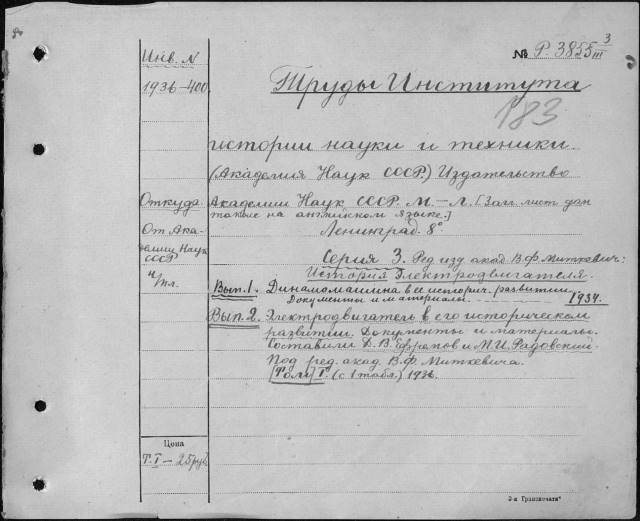 Инв. N
1936-400.
№ Р. 3855 3/III
Труды Института
183
истории науки и техники.
(Академия Наук СССР.) Издательство
Откуда
Академии Наук СССР. М. — Л. [Загл. лист дан
также на английском языке.]
От Ака-
демии Наук
СССР
Ленинград. 8°.
Серия 3. Ред. изд. акад. В.Ф. Миткевич:
История электродвигателя.
Вып. 1. Динамомашина в ее историч. развитии.
Документы и материалы. 1934.
Вып. 2. Электродвигатель в его историческом
развитии. Документы и материалы.
Составили Д. В. Ефремов и М. И. Радовский.
Под ред. акад. В. Ф. Миткевича.
[Том] I. (с 1 табл.) 1936.
Цена
Т. I — 25 руб.
3-я Гразпечать